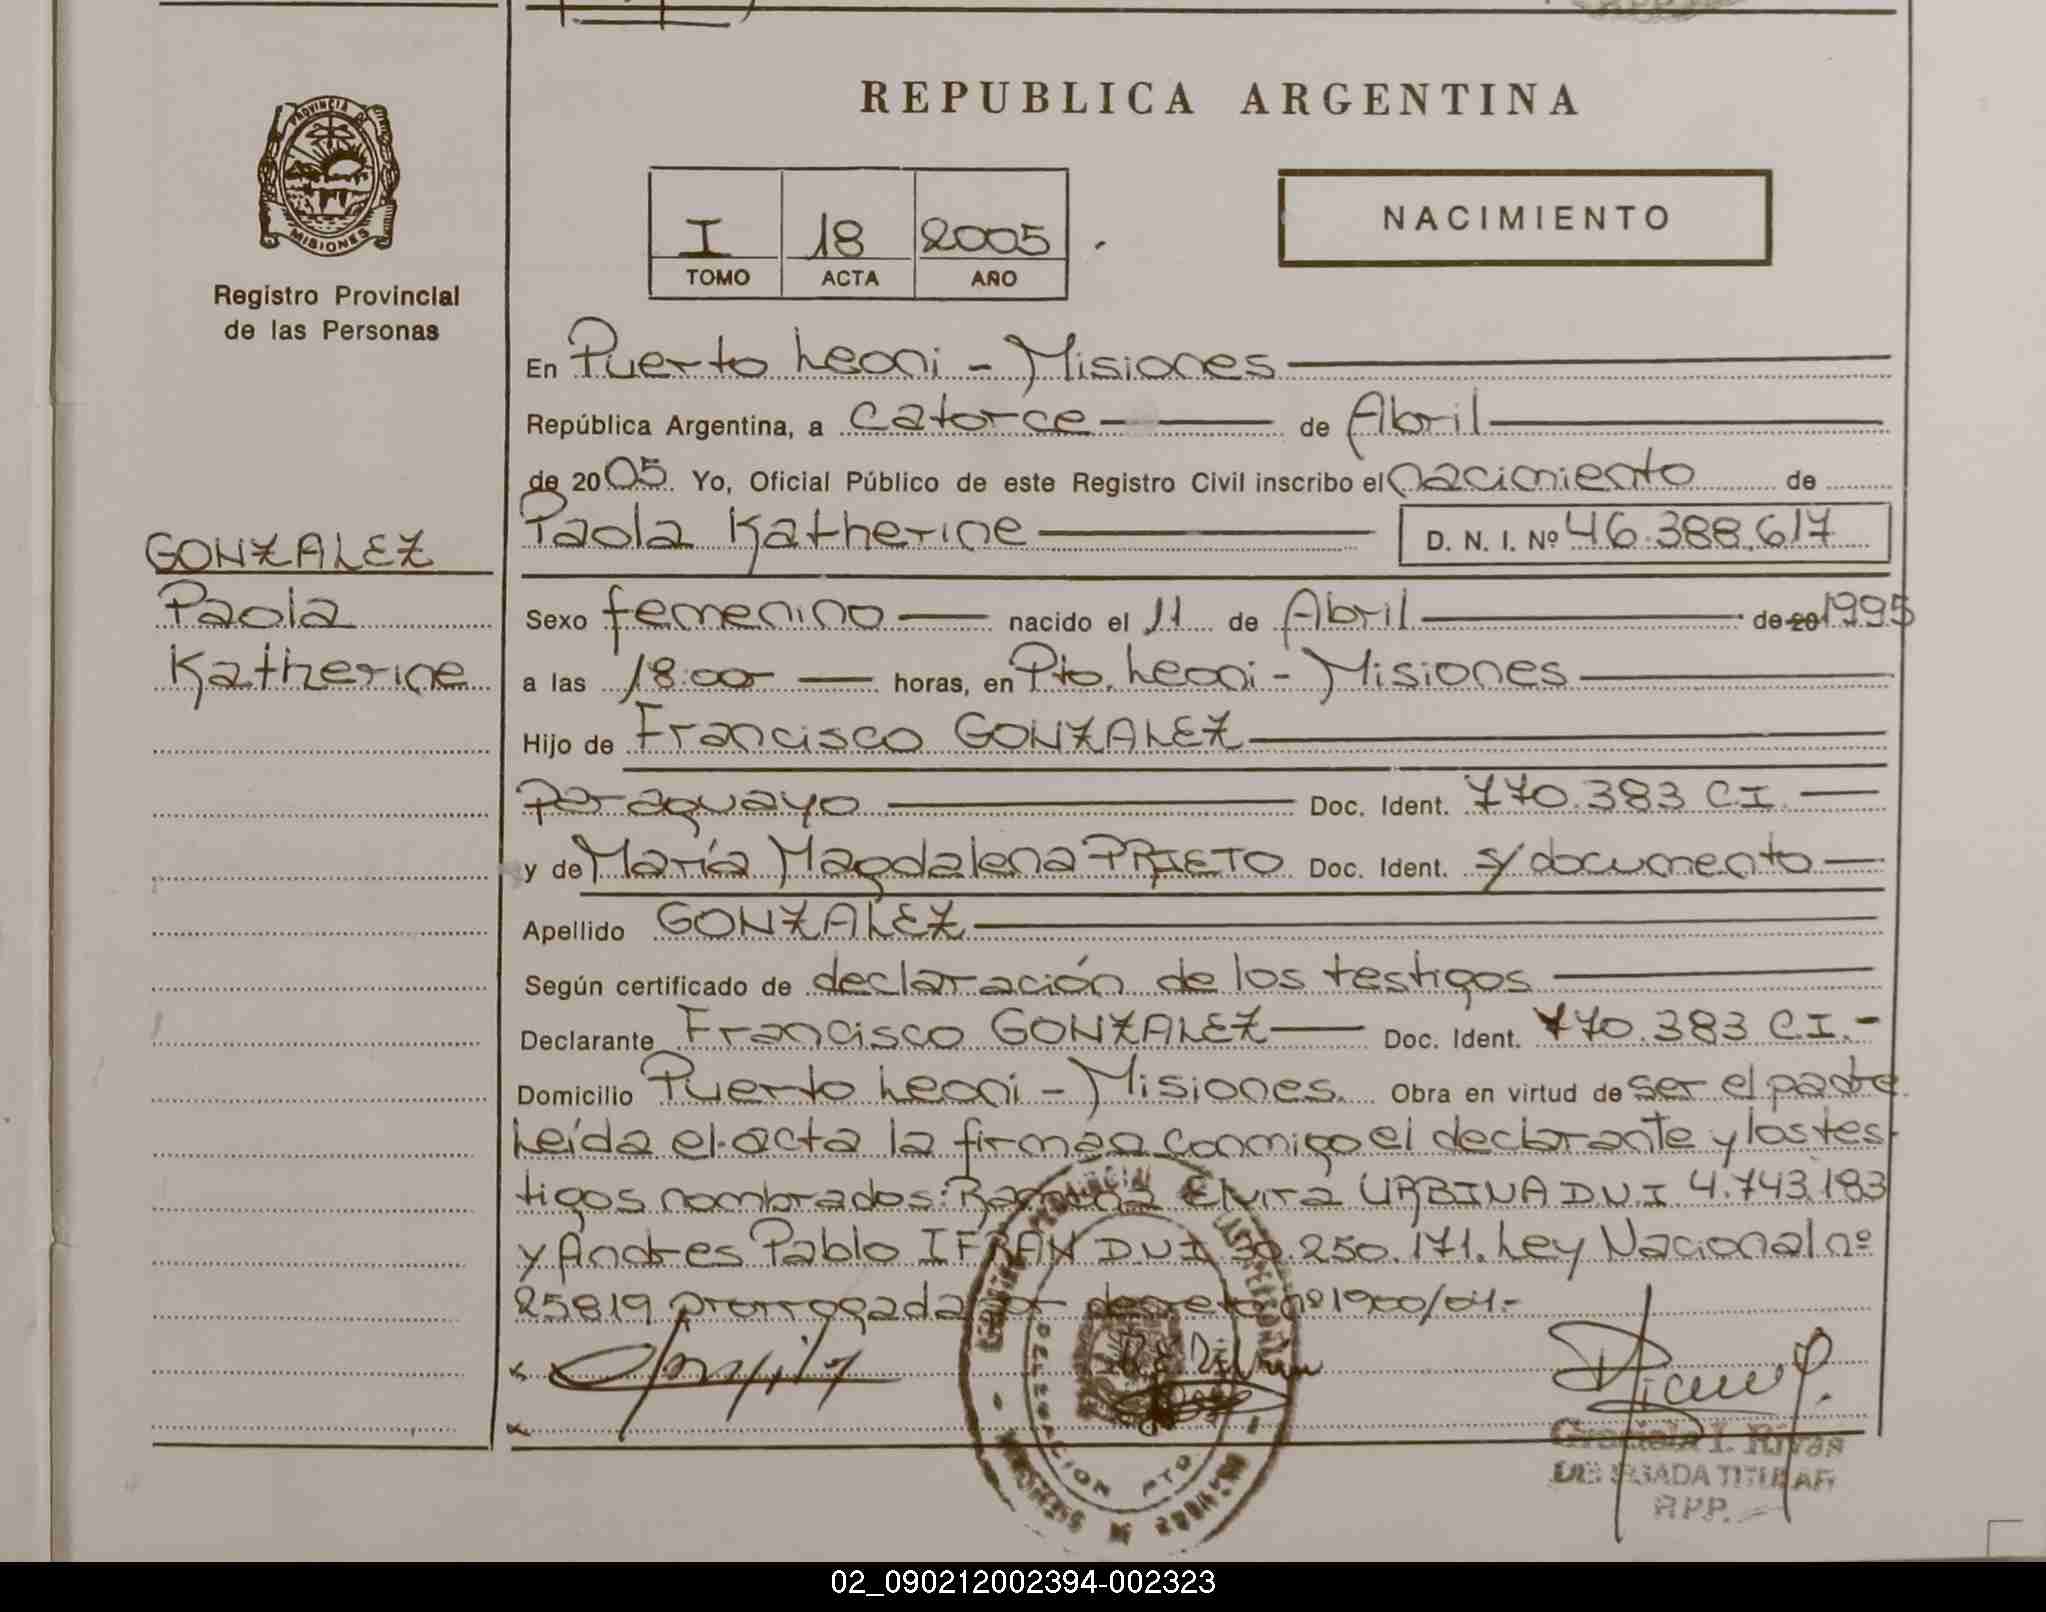 REPUBLICA ARGENTINA
PROVINCIA DE
MISIONES
Registro Provincial
de las Personas
I 18 2005
TOMO ACTA AÑO
NACIMIENTO
GONZALEZ
Paola
Katherine
En Puerto Leoni - Misiones
República Argentina, a catorce de Abril
de 2005. Yo, Oficial Público de este Registro Civil inscribo el nacimiento de
Paola Katherine D. N. I. Nº 46.388.617
Sexo femenino nacido el 11 de Abril de 20 1995
a las 18:00 horas, en Pto. Leoni - Misiones
Hijo de Francisco GONZALEZ
Paraguayo Doc. Ident. 770.383 CI.
y de María Magdalena PRIETO Doc. Ident. s/documento
Apellido GONZALEZ
Según certificado de declaración de los testigos
Declarante Francisco GONZALEZ Doc. Ident. 770.383 C.I.-
Domicilio Puerto Leoni - Misiones. Obra en virtud de ser el padre.
Leída el acta la firman conmigo el declarante y los tes-
tigos nombrados: Ramona Elvira URBINA D.N.I 4.743.183
y Andres Pablo IFRAN D.N.I 30.250.171. Ley Nacional nº
25819 prorrogada por decreto nº 1900/04.-
DELEGACION PTO.
Graciela I. Rivas
DELEGADA TITULAR
R.P.P.
02_090212002394-002323